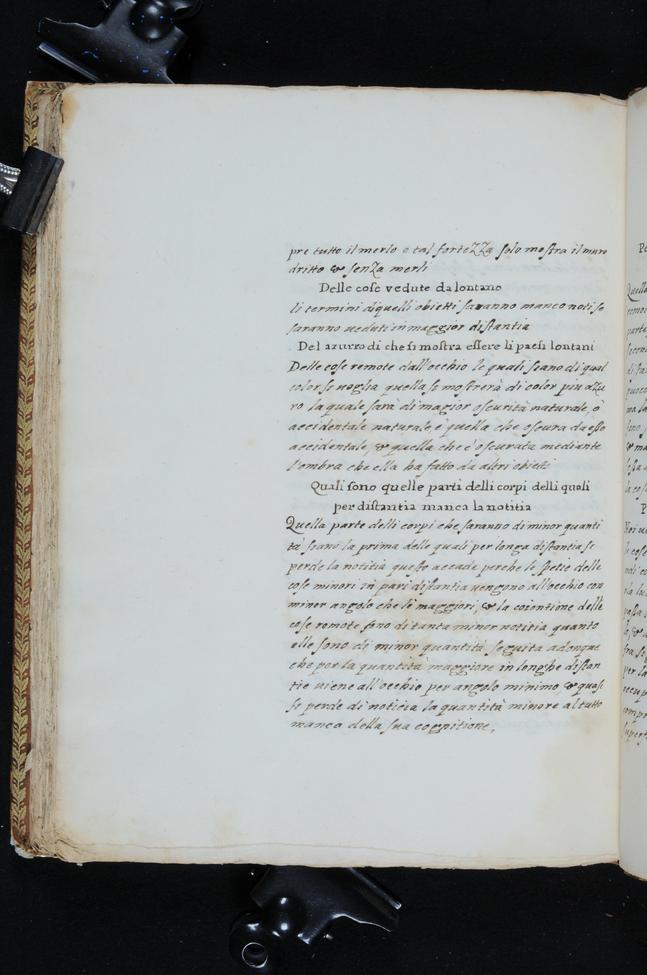 pre tutto il merlo e tal fortezza solo mostra il muro
dritto & senza merli
Delle cose vedute da lontano
li termini di quelli obietti saranno manco noti se
saranno veduti in maggior distantia
Del azurro di che si mostra essere li paesi lontani
Delle cose remote dall'occhio le quali siano di qual
color se voglia quella se mostrerà di color piu azu
ro la quale sarà di magior oscurità naturale, ò
accidentale naturale, è quella che oscura da esse
accidentale, & quella che è oscurata mediante
l'ombra che ella ha fatto da altri obietti
Quali sono quelle parti delli corpi delli quali
per distantia manca la notitia
Quella parte delli corpi che saranno di minor quanti
tà siano la prima delle quali per longa distantia si
perde la notitia questo accade perche le spetie delle
cose minori in pari distantia vengono all'occhio con
minor angolo che le maggiori, & la cognitione delle
cose remote sono di tanta minor notitia quanto
elle sono di minor quantità seguita adonque
che per la quantità maggiore in longhe distan
tie viene all'occhio per angolo minimo, & quasi
se perde di noticia la quantità minore al tutto
manca della sua cognitione,
Quella